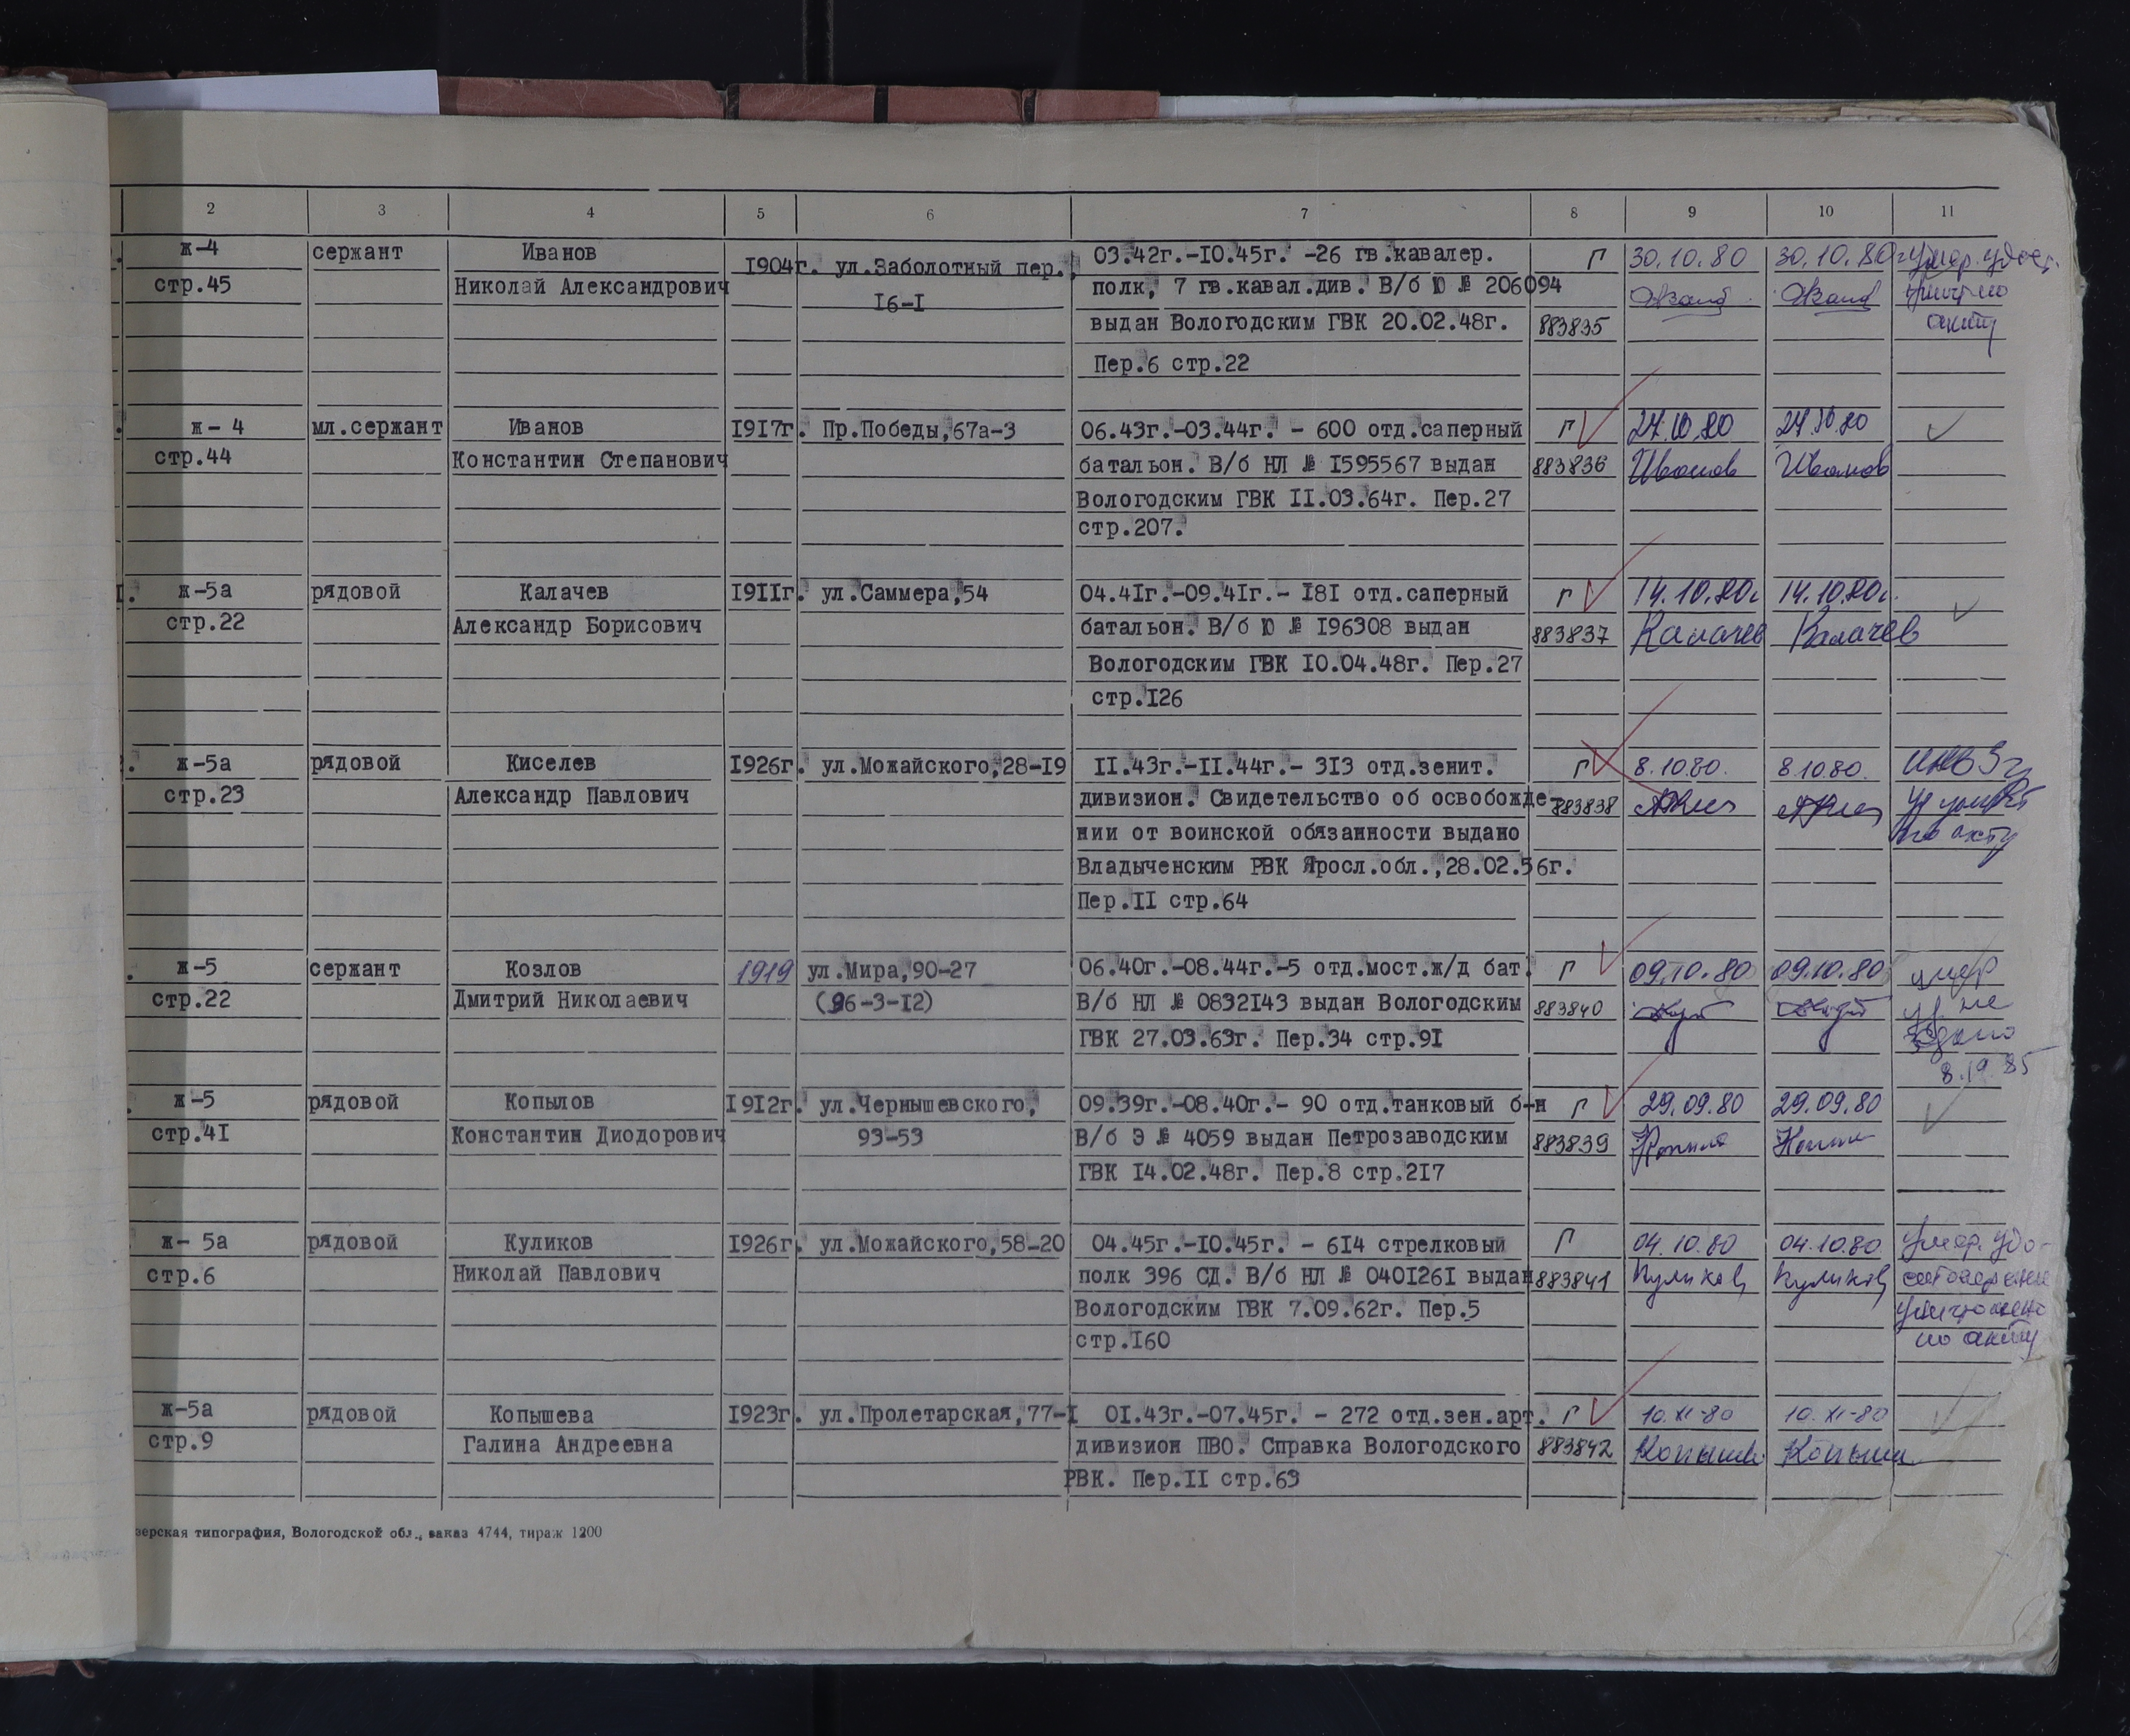 2 3 4 5 6 7 8 9 10 11
ж-4 сержант Иванов 1904г. ул.Заболотный пер., 03.42г.-10.45г. -26 гв.кавалер. Г 30.10.80 30.10.80 умер. удост.
стр.45 Николай Александрович 16-1 полк, 7 гв.кавал.див. В/б Ю № 206094
выдан Вологодским ГВК 20.02.48г. 883835 акту
Пер.6 стр.22
ж- 4 мл.сержант Иванов 1917г. Пр.Победы,67а-3 06.43г.-03.44г. - 600 отд.саперный Г
стр.44 Константин Степанович батальон. В/б НЛ № 1595567 выдан 883836 Иванов Иванов
Вологодским ГВК 11.03.64г. Пер.27
стр.207.
ж-5а рядовой Калачев 1911г. ул.Саммера,54 04.41г.-09.41г.- 181 отд.саперный Г 14.10.80г 14.10.80г.
стр.22 Александр Борисович батальон. В/б Ю № 196308 выдан 883837 Калачев Калачев
Вологодским ГВК 10.04.48г. Пер.27
стр.126
ж-5а рядовой Киселев 1926г. ул.Можайского,28-19 11.43г.-11.44г.- 313 отд.зенит. Г 8.10.80. 8.10.80. инв 3г
стр.23 Александр Павлович дивизион. Свидетельство об освобожде- 883838
нии от воинской обязанности выдано по акту
Владыченским РВК Яросл.обл.,28.02.56г.
Пер.11 стр.64
ж-5 сержант Козлов 1919 ул.Мира,90-27 06.40г.-08.44г.-5 отд.мост.ж/д бат. Г 09.10.80 09.10.80 умер
стр.22 Дмитрий Николаевич (96-3-12) В/б НЛ № 0832143 выдан Вологодским 883840 не
ГВК 27.03.63г. Пер.34 стр.91
ж-5 рядовой Копылов 1912г. ул.Чернышевского, 09.39г.-08.40г.- 90 отд.танковый б-н Г 29.09.80 29.09.80
стр.41 Константин Диодорович 93-53 В/б Э № 4059 выдан Петрозаводским 883839
ГВК 14.02.48г. Пер.8 стр.217
ж- 5а рядовой Куликов 1926г. ул.Можайского,58-20 04.45г.-10.45г. - 614 стрелковый Г 04.10.80 04.10.80 Умер. удо-
стр.6 Николай Павлович полк 396 СД. В/б НЛ № 0401261 выдан 883841 Куликов Куликов стоверение
Вологодским ГВК 7.09.62г. Пер.5 уничтожено
стр.160 по акту
ж-5а рядовой Копышева 1923г. ул.Пролетарская,77-1 01.43г.-07.45г. - 272 отд.зен.арт. Г 10.XI-80 10.XI-80
стр.9 Галина Андреевна дивизион ПВО. Справка Вологодского 883842
РВК. Пер.11 стр.63
зерская типография, Вологодской обл., заказ 4744, тираж 1200